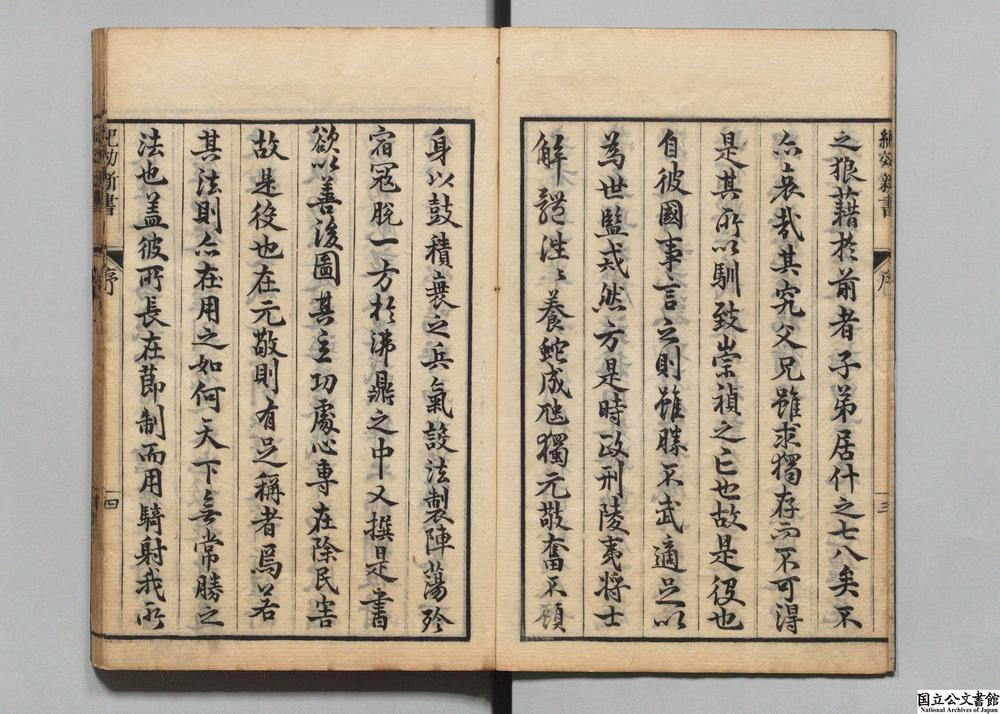 紀效新書 序 三
之狼藉於前者子弟居什之七八矣不
亦哀哉其究父兄雖求獨存而不可得
是其所以馴致崇禎之亡也故是役也
自彼國事言之則雖勝不武適足以
為世監戒然方是時政刑陵夷將士
解體泄〻養蛇成虺獨元敬奮不顧
身以鼓積衰之兵氣設法製陣蕩殄
宿寇脫一方於沸鼎之中又撰是書
欲以善後圖其立功處心專在除民害
故是役也在元敬則有足稱者焉若
其法則亦在用之如何天下無常勝之
法也蓋彼所長在節制而用騎射我所
紀効新書 序 四
国立公文書館
National Archives of Japan